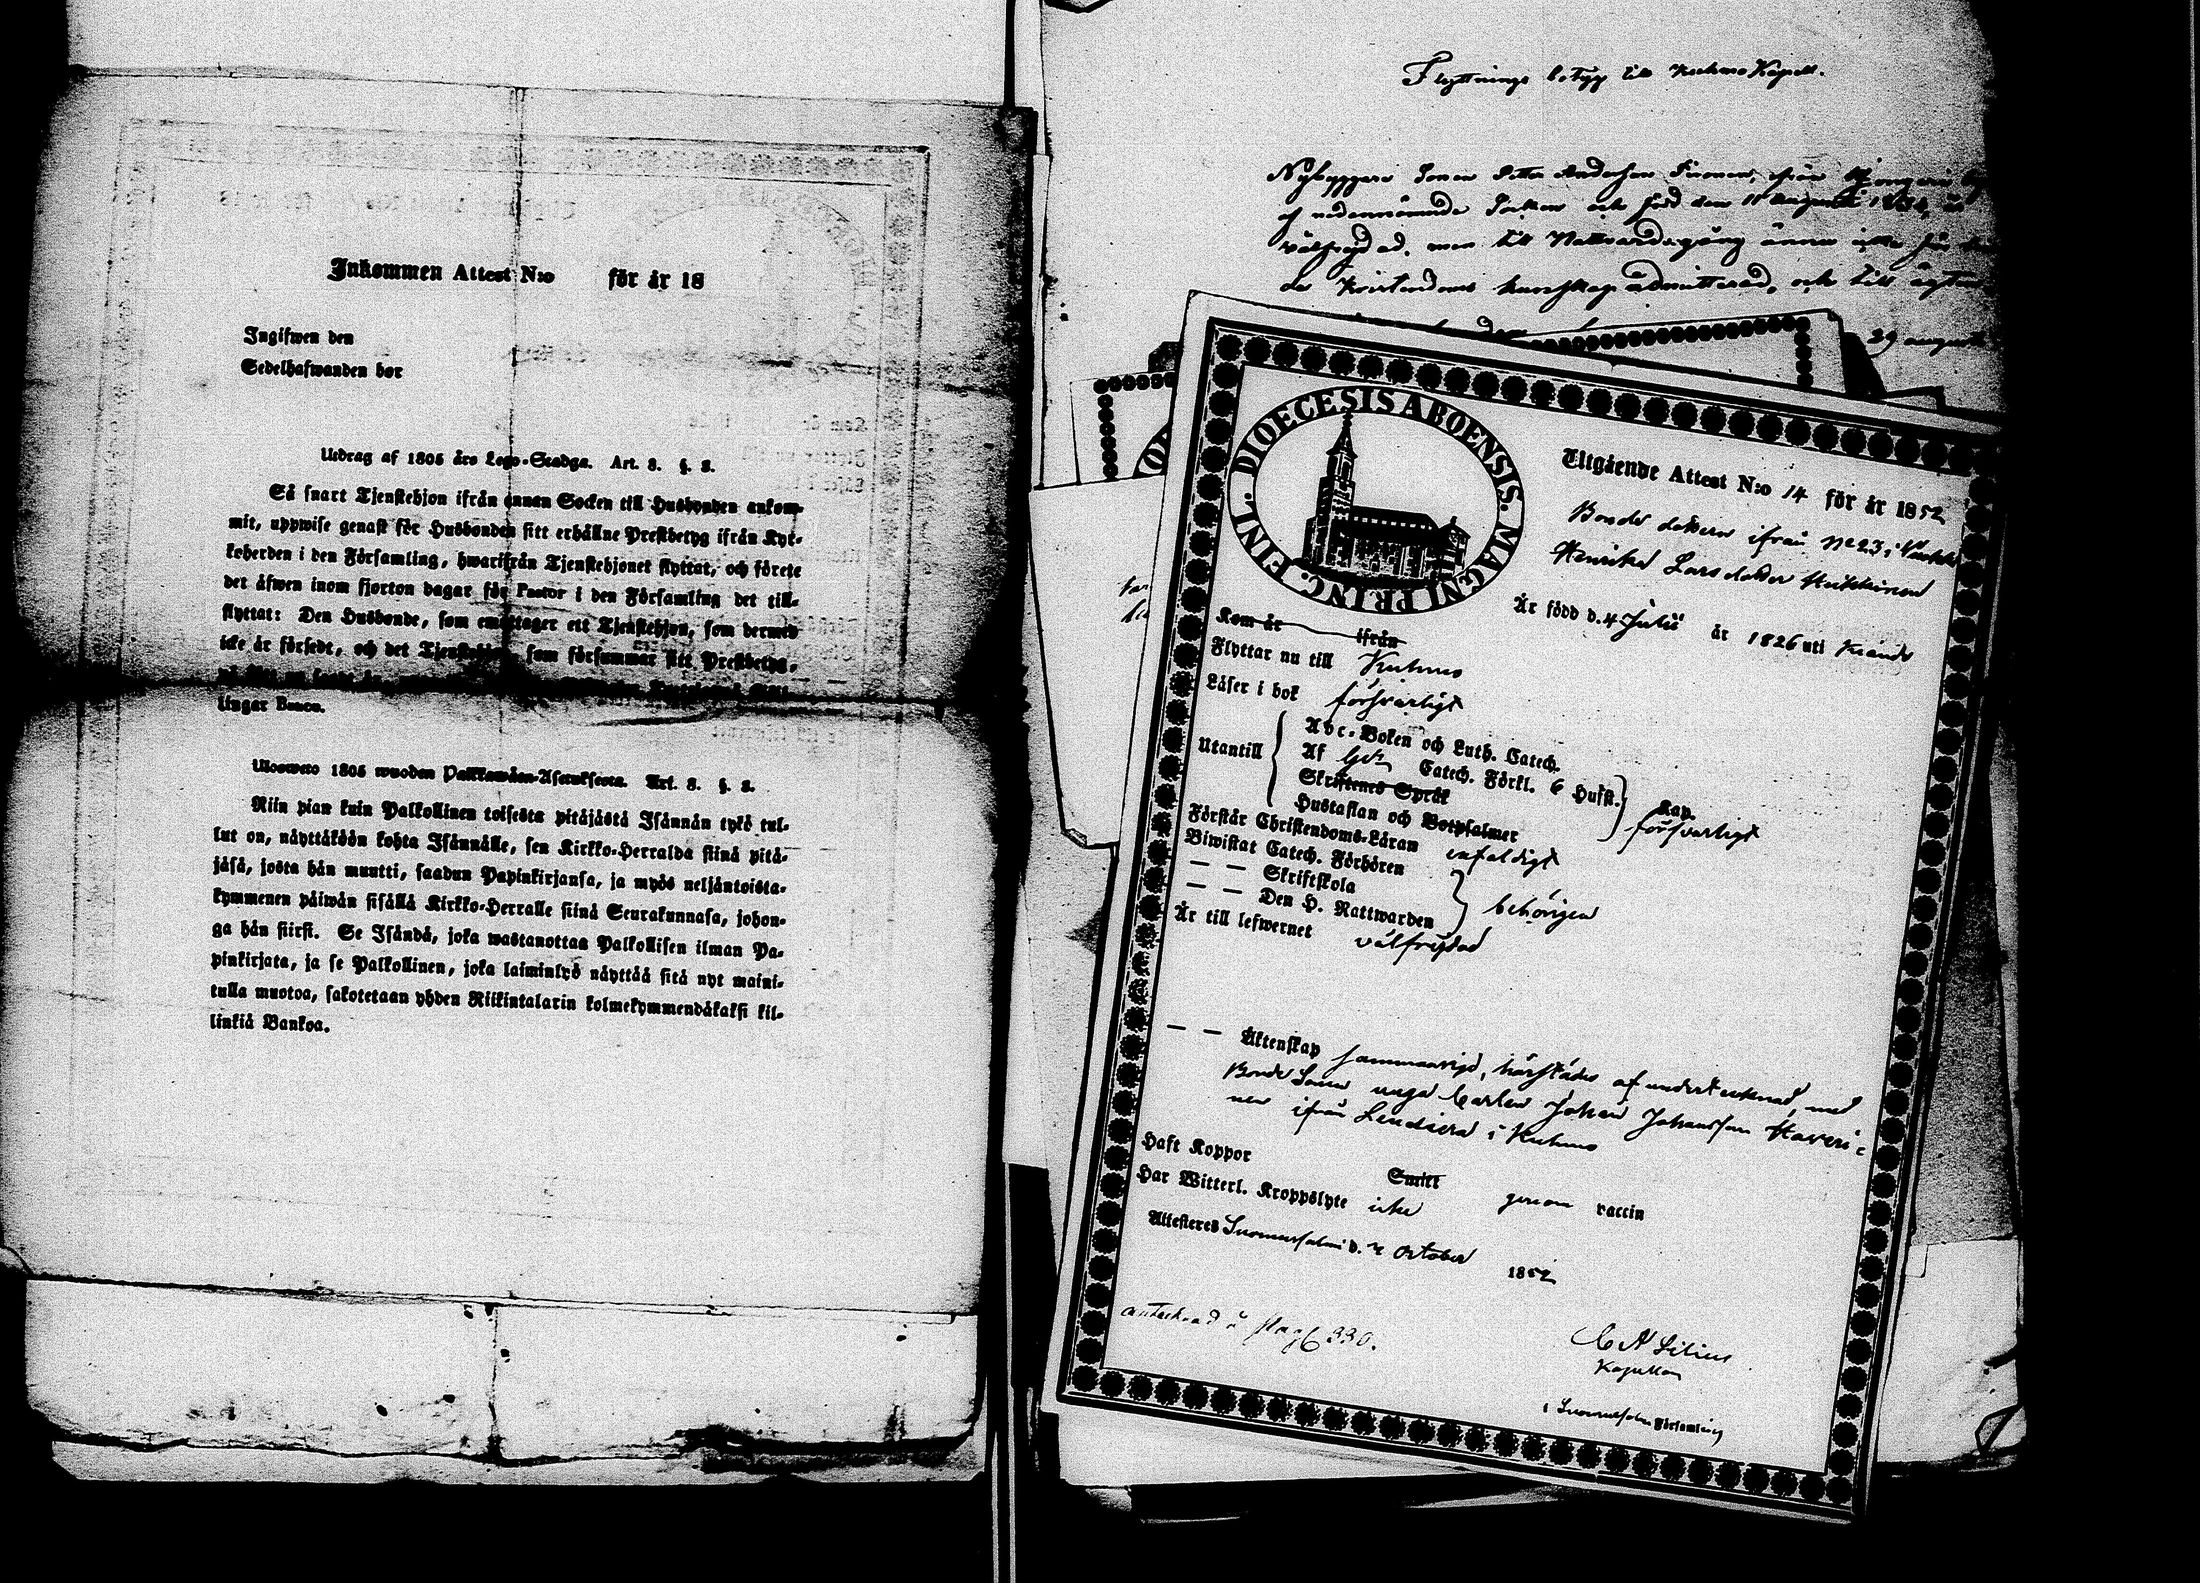 Inkommen Attest N:o för år 18
Ingifwen den
Sedelhafwanden bor
Utdrag af 1805 års Lego-Stadga. Art. 8. §. 2.
Så snart Tjenstehjon ifrån annan Socken till Husbonden ankom-
mit, uppwise genast för Husbonden sitt erhållne Prestbetyg ifrån Kyr-
koherden i den Församling, hwarifrån Tjenstehjonet flyttat, och förete
det äfwen inom fjorton dagar för Pastor i den Församling det till-
flyttat: Den Husbonde, som emottager ett Tjenstehjon, som dermed
icke är försedt, och det Tjenstehjon som försummar sitt Prestbetyg,
lingar Banco.
Ulosweto 1805 wuoden Palkkawäen-Asetuksesta. Art. 8. §. 2.
Niin pian kuin Palkollinen toisesta pitäjästä Isännän tykö tul-
lut on, näyttäköön kohta Isännälle, sen Kirkko-Herralda siinä pitä-
jäsä, josta hän muutti, saadun Papinkirjansa, ja myös neljäntoista-
kymmenen päiwän sisällä Kirkko-Herralle siinä Seurakunnasa, johon-
ga hän siirsi. Se Isändä, joka wastanottaa Palkollisen ilman Pa-
pinkirjata, ja se Palkollinen, joka laiminlyö näyttää sitä nyt maini-
tulla muotoa, sakotetaan yhden Riikintalarin kolmekymmendäkaksi kil-
linkiä Bankoa.
Flyttnings betyg till Kuhmo Kapell.
Nybyggare Sonen Petter Andersson Piironen, ifrån
af nedannämnde Socken och född den 11 Augusti 18
välfrejdad, men till Nattvardsgång ännu icke
de Kristendoms kunskap admitterad, och till ägten
29 august
DIOECESIS ABOENSIS. MAGNI PRINC. FINL.
Utgående Attest N:o 14 för år 1852
Bonde dottern ifrån No 23 i
Henrika Larsdotter
Är född d. 4 Julii år 1826 uti
Kom år ifrån
Flyttar nu till Kuhmo
Läser i bok försvarligt
Utantill
Abc-Boken och Luth. Catech.
Af Catech. Förkl. 6 Hufst.
Skriftenes Språk Kap.
Hustaflan och Botpsalmer försvarligt
Förstår Christendoms-Läran enfaldigt
Biwistat Catech. Förhören
— — Skriftskola behörigen
— — Den H. Nattwarden
Är till lefwernet välfrejdad
— — Äktenskap sammanvigd, härstädes af undertecknad, med
Bonde Sonen unga Carlen Johan Johansson Haveri-
nen ifrån Lendiera i Kuhmo
Haft Koppor Smitt genom vaccin
Har Witterl. Kroppslyte icke
Attesteres Suomussalmi d. October 1852
antecknad å pag 330.
C A Lilius
Kapellan
i Suomussalmi Församling